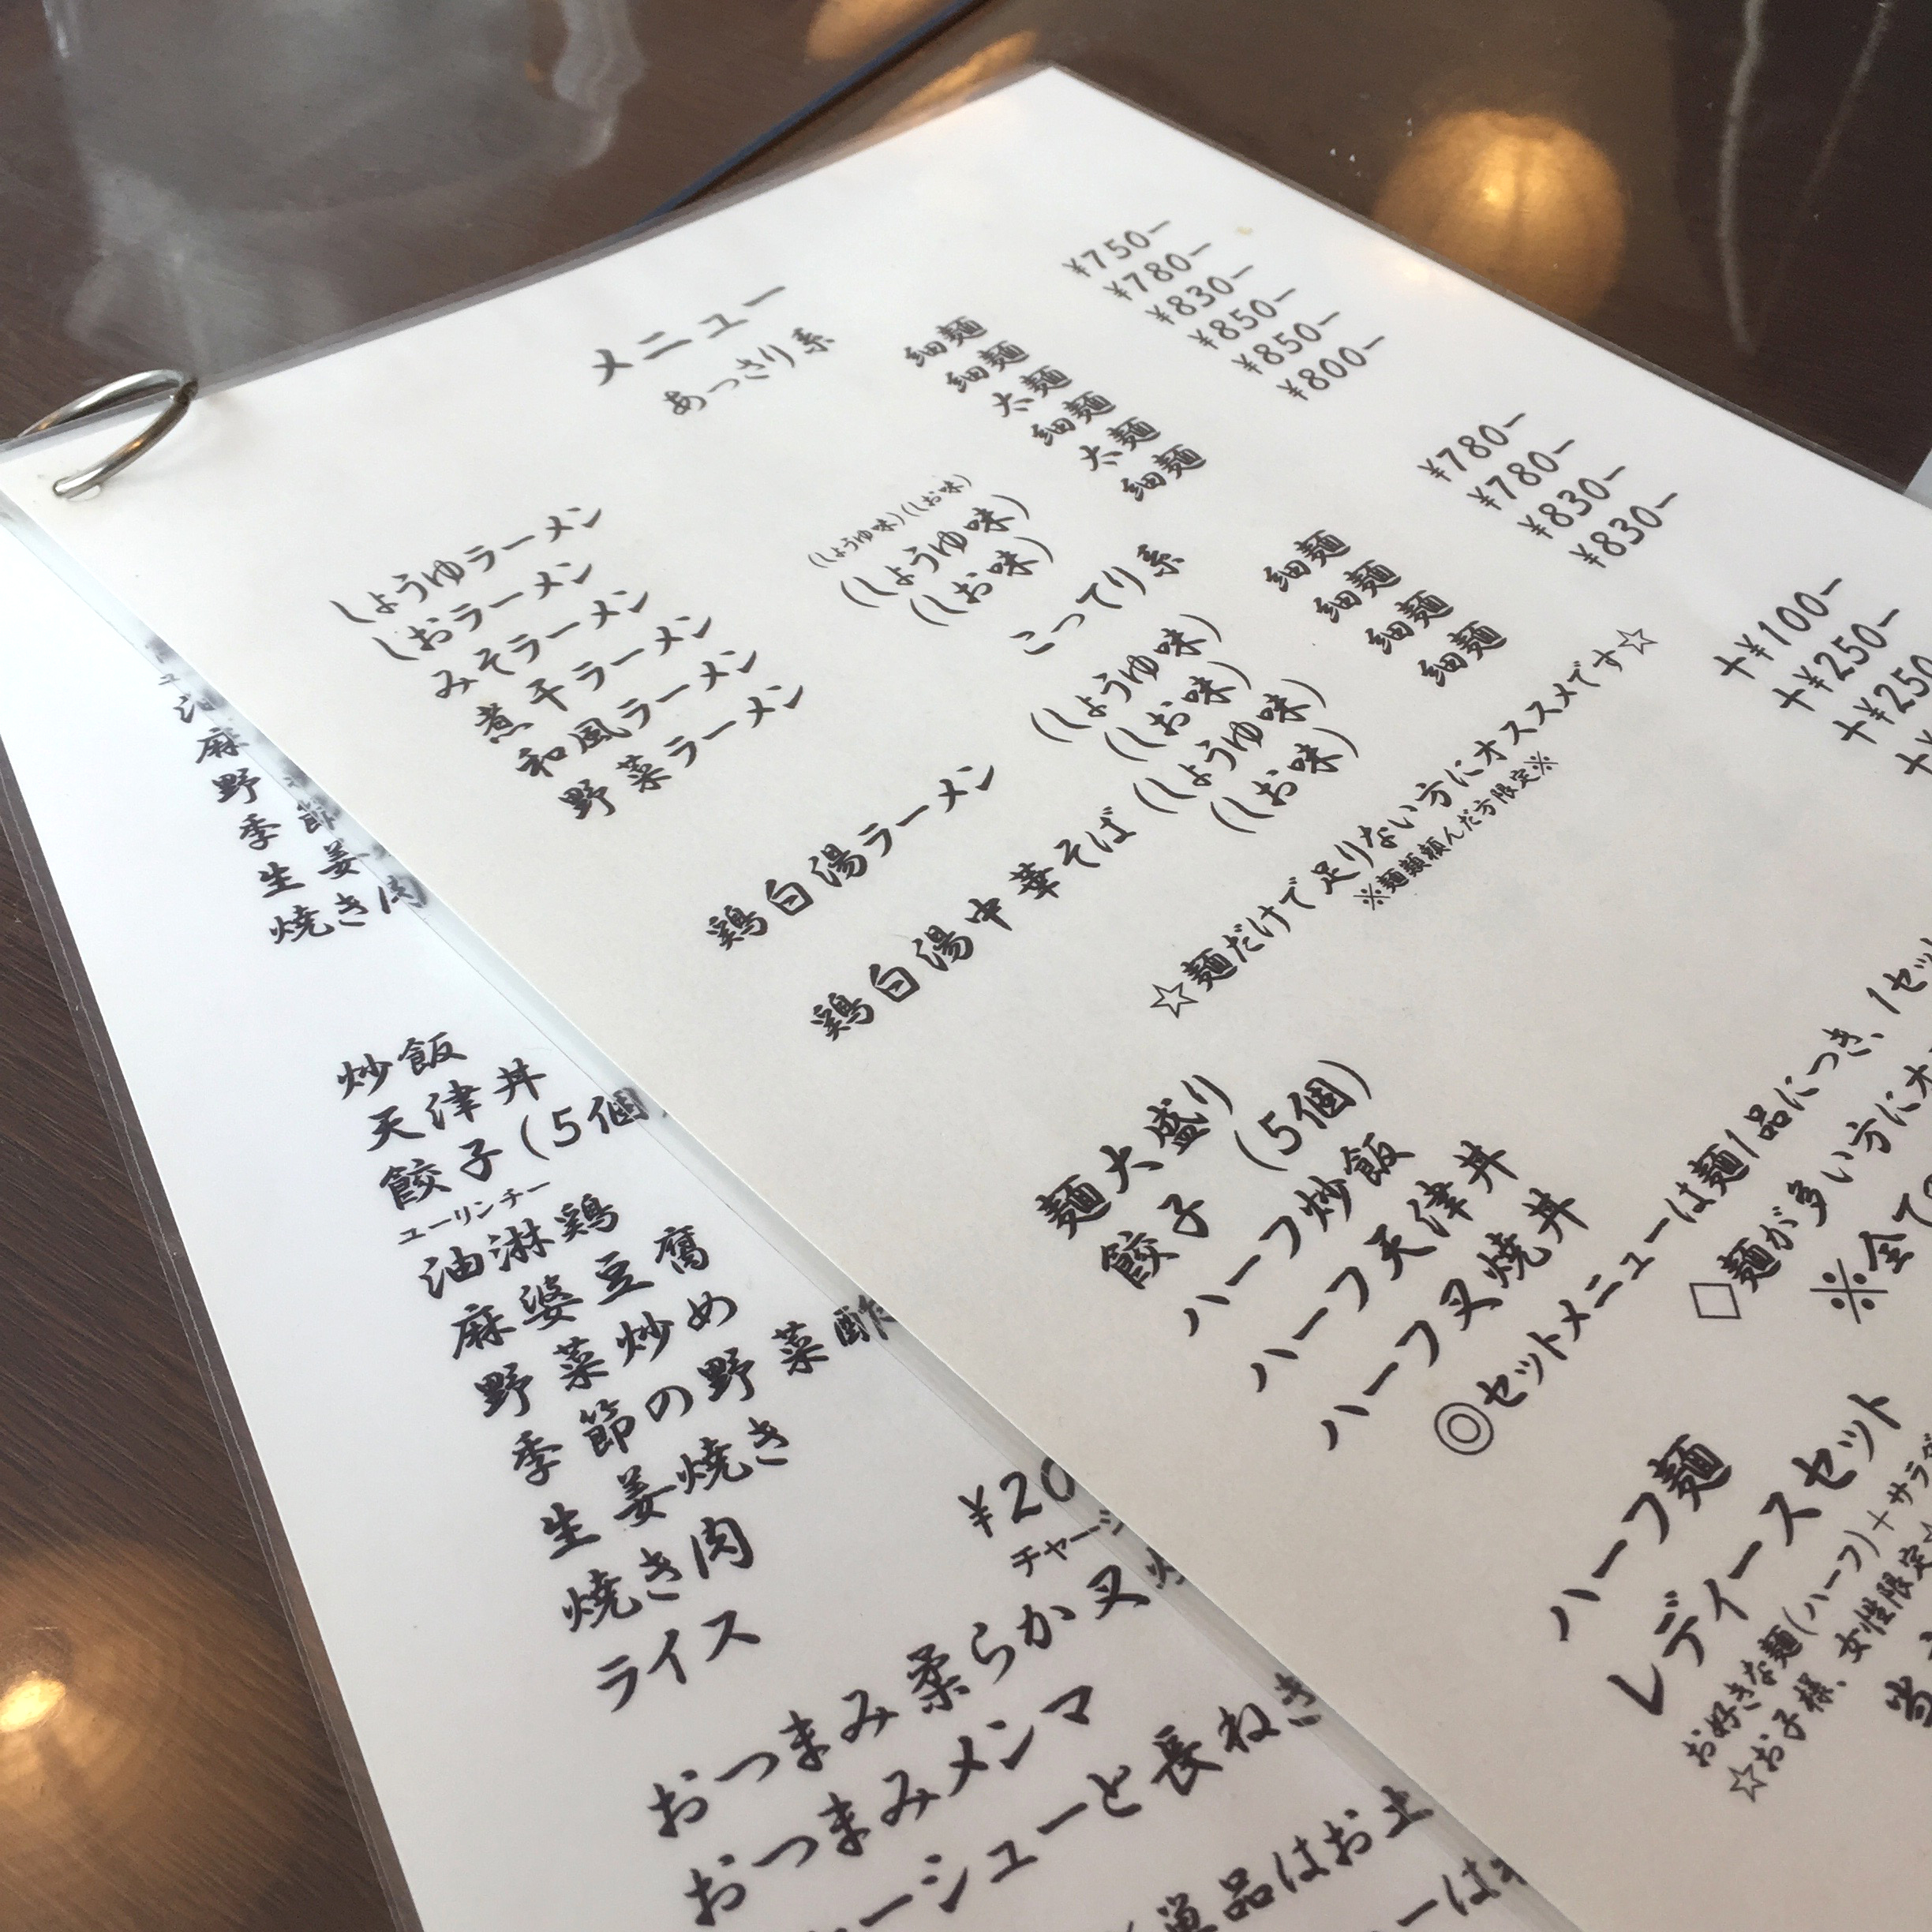 メニュー
あっさり系
しょうゆラーメン 細麺 ¥750ー
しおラーメン 細麺 ¥780ー
みそラーメン 太麺 ¥830ー
煮干ラーメン (しょうゆ味)(しお味) 細麺 ¥850ー
和風ラーメン (しょうゆ味) 太麺 ¥850ー
野菜ラーメン (しお味) 細麺 ¥800ー
こってり系
鶏白湯ラーメン (しょうゆ味) 細麺 ¥780ー
(しお味) 細麺 ¥780ー
鶏白湯中華そば (しょうゆ味) 細麺 ¥830ー
(しお味) 細麺 ¥830ー
☆麺だけで足りない方にオススメです☆
※麺類頼んだ方限定※
麺大盛り +¥100ー
餃子 (5個) +¥250ー
ハーフ炒飯 +¥250
ハーフ天津丼 +¥
ハーフ叉焼丼
◎セットメニューは麺1品につき、1セッ
◇麺が多い方にオ
※全て
ハーフ麺
レディースセット
お好きな麺(ハーフ)+サラダ
☆お子様、女性限定
麻
野
季節
生姜
焼き肉
炒飯
天津丼
餃子(5個
ユーリンチー
油淋鶏
麻婆豆腐
野菜炒め
季節の野菜
生姜焼き
焼き肉
ライス
¥20
チャーシ
おつまみ柔らか叉
おつまみメンマ
ーシューと長ねぎ
単品はお土
ーは